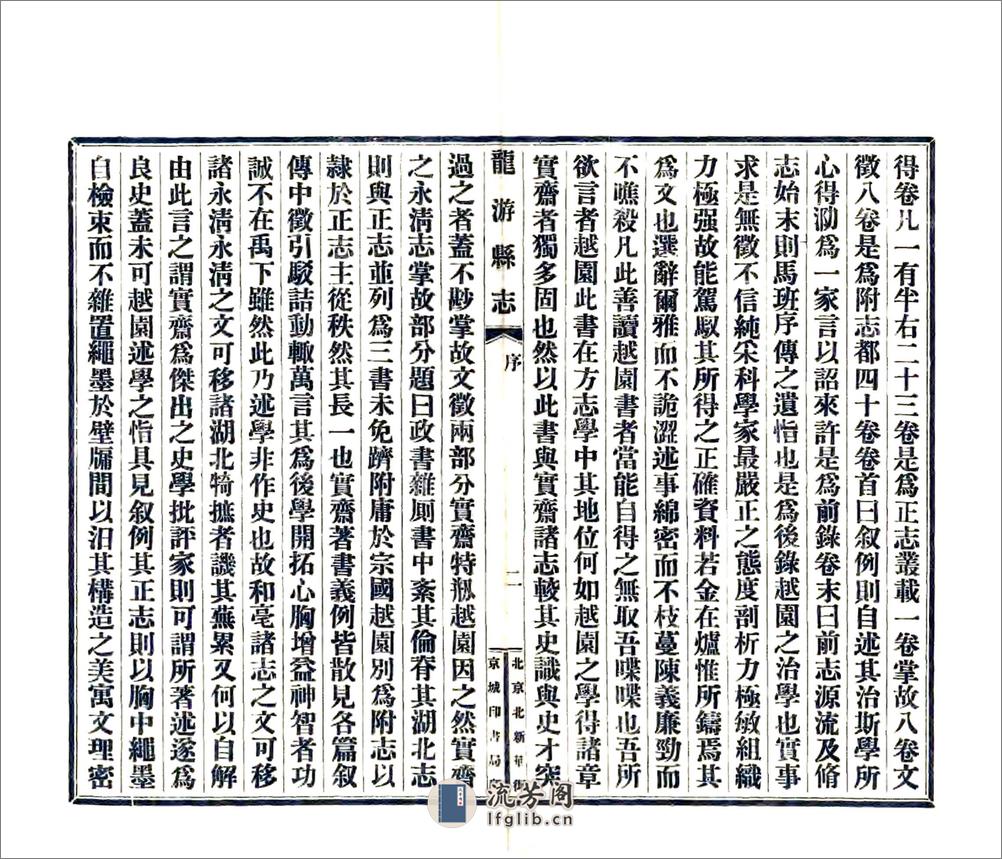 得卷凡一有半右二十三卷是爲正志叢載一卷掌故八卷文
徵八卷是爲附志都四十卷卷首曰叙例則自述其治斯學所
心得泐爲一家言以詔來許是爲前錄卷末曰前志源流及脩
志始末則馬班序傳之遺恉也是爲後錄越園之治學也實事
求是無徵不信純采科學家最嚴正之態度剖析力極敏組織
力極强故能駕馭其所得之正確資料若金在爐惟所鑄焉其
爲文也選辭爾雅而不詭澀述事綿密而不枝蔓陳義廉勁而
不噍殺凡此善讀越園書者當能自得之無取吾喋喋也吾所
欲言者越園此書在方志學中其地位何如越園之學得諸章
實齋者獨多固也然以此書與實齋諸志較其史識與史才突
龍游縣志
序
二
北京北新華街
京城印書局
過之者蓋不尟掌故文徵兩部分實齋特刱越園因之然實齋
之永淸志掌故部分題曰政書雜厕書中紊其倫脊其湖北志
則與正志並列爲三書未免躋附庸於宗國越園別爲附志以
隷於正志主從秩然其長一也實齋著書義例皆散見各篇叙
傳中徵引駁詰動輒萬言其爲後學開拓心胸增益神智者功
誠不在禹下雖然此乃述學非作史也故和亳諸志之文可移
諸永淸永淸之文可移諸湖北犄摭者譏其蕪累又何以自解
由此言之謂實齋爲傑出之史學批評家則可謂所著述遂爲
良史蓋未可越園述學之恉具見叙例其正志則以胸中繩墨
自檢束而不雜置繩墨於壁牖間以汨其構造之美寓文理密
流芳阁
lfglib.cn